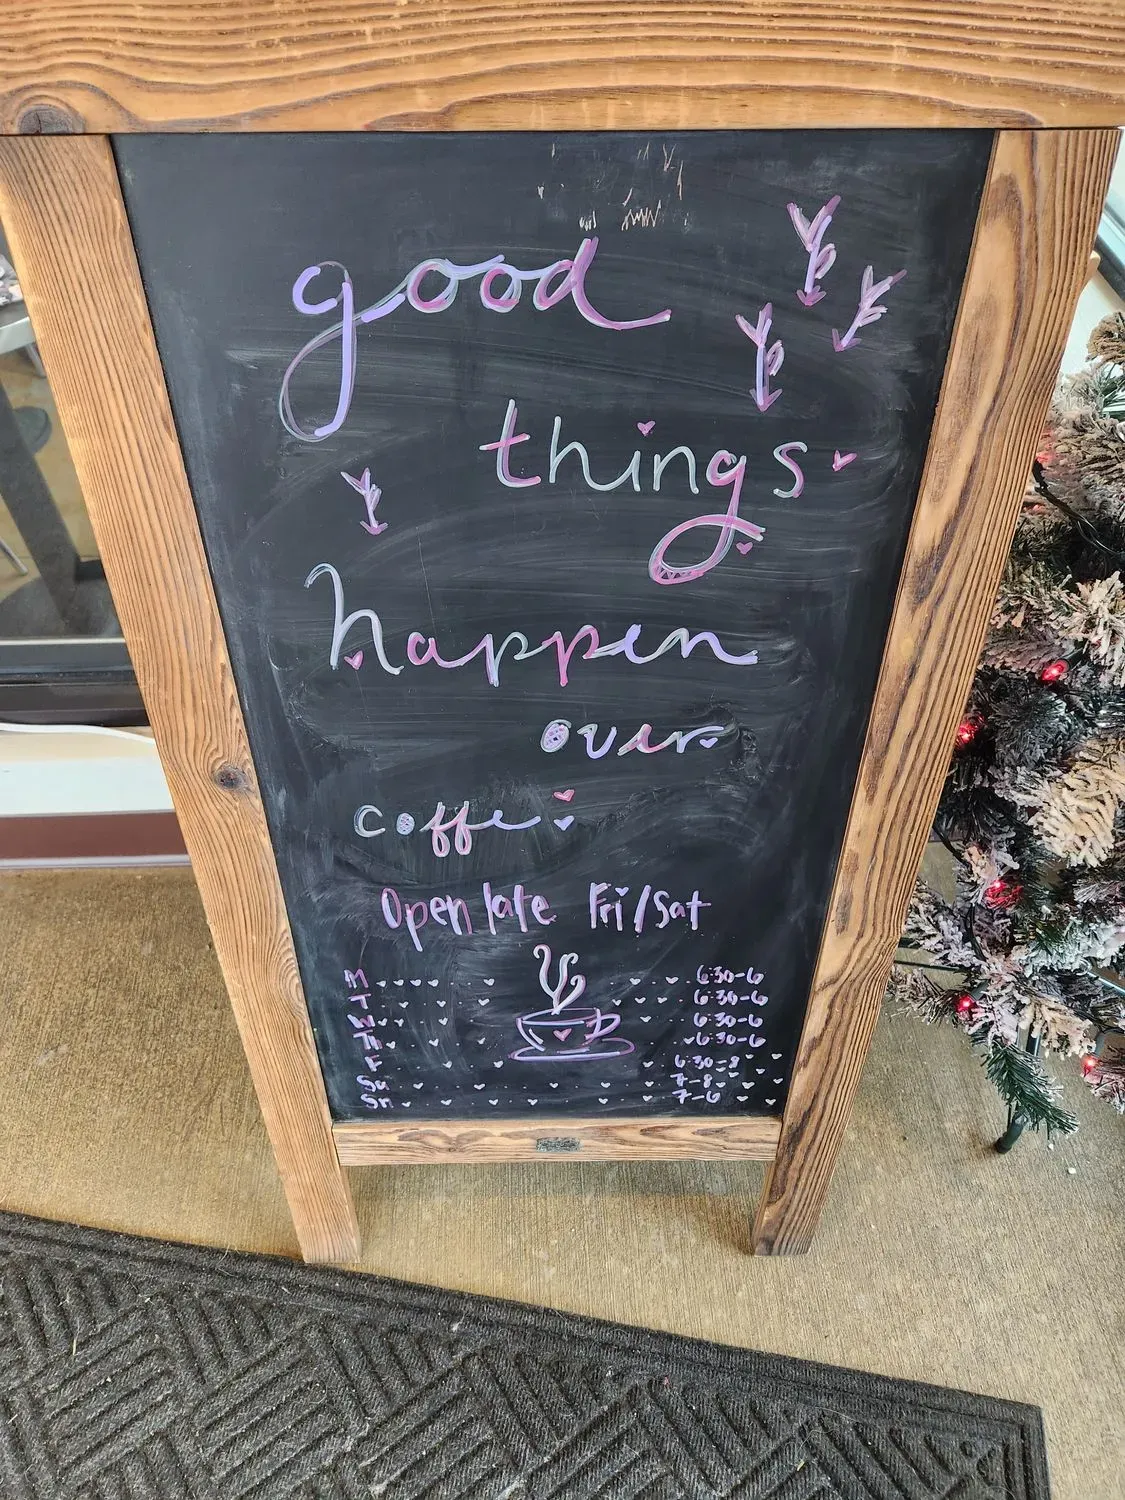 good
things
happen
over
coffe
Open late Fri/Sat
M 6:30-6
T 6:30-6
W 6:30-6
Th 6:30-6
F 6:30-8
Sa 7-8
Sn 7-6